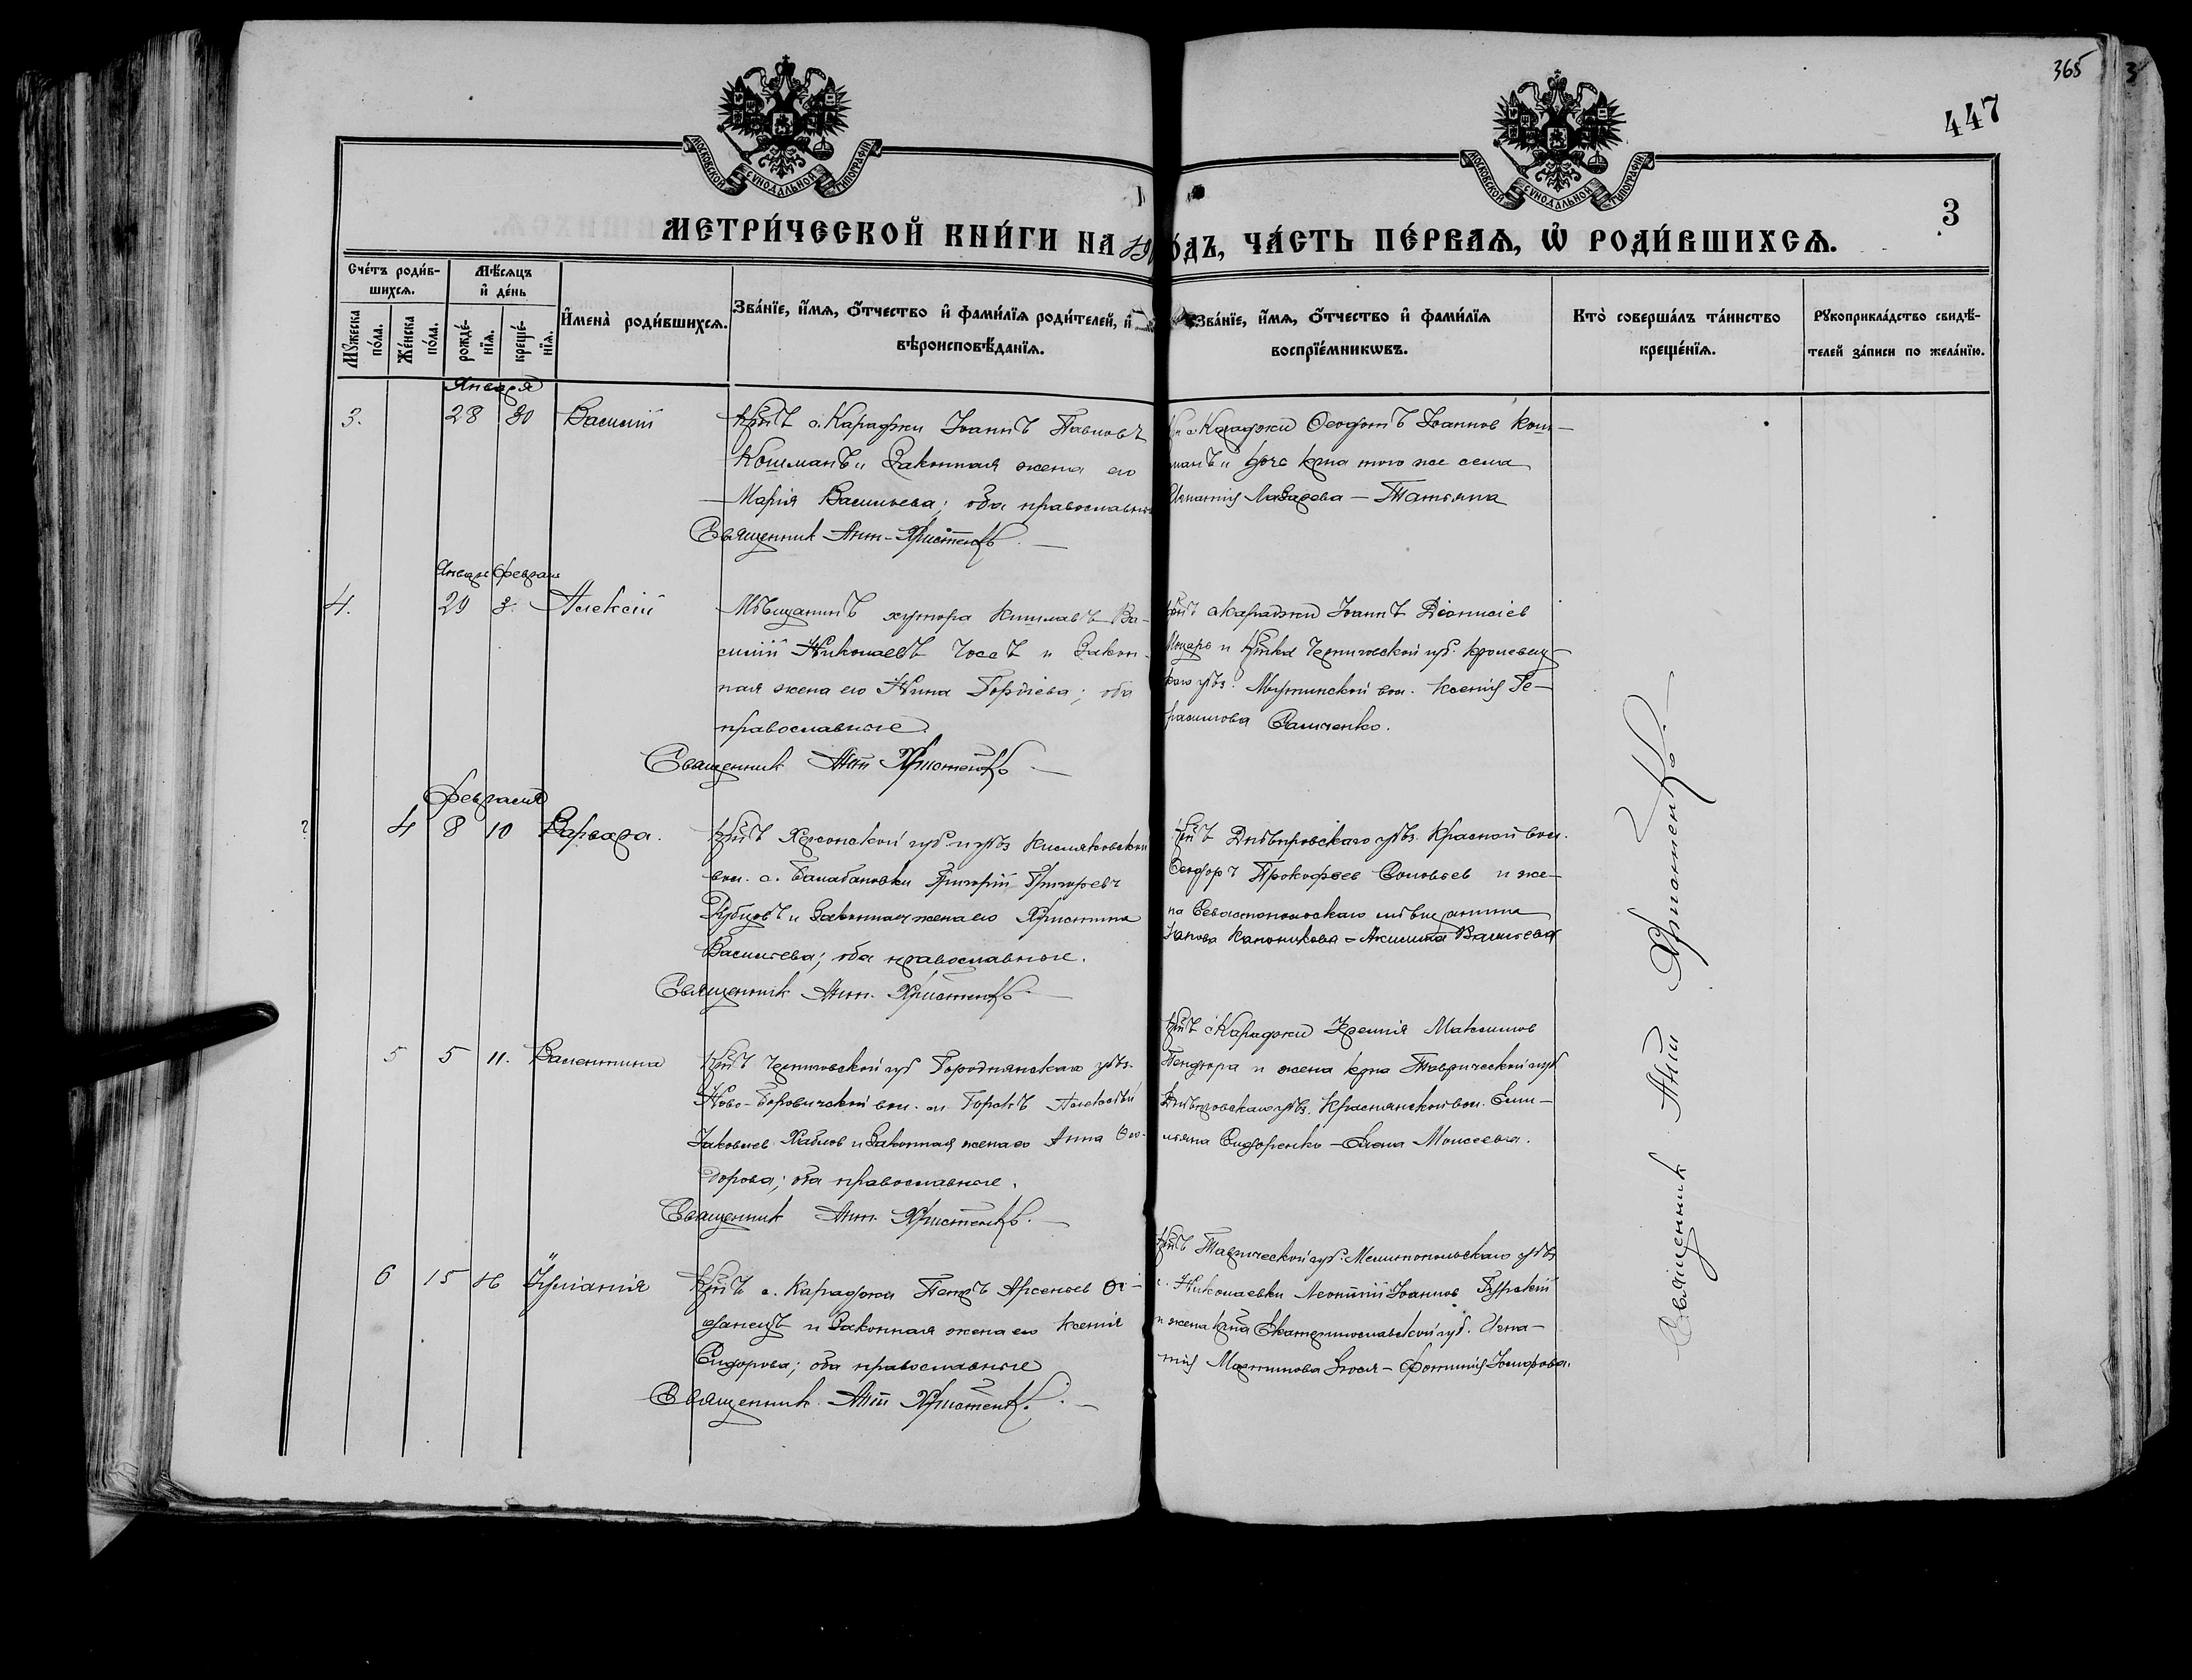 365
447
3
МОСКОВСКОЙ СѴНОДАЛЬНОЙ ТИПОГРАФІИ
МОСКОВСКОЙ СѴНОДАЛЬНОЙ ТИПОГРАФІИ
МЕТРИ́ЧЕСКОЙ КНИ́ГИ НА 19
О́ДЪ, ЧА́СТЬ ПЕ́РВАѦ, Ѡ҆ РОДИ́ВШИХСѦ.
Сче́тъ роди́в-
шихсѧ.
Мꙋжеска по́ла.
Же́нска по́ла.
Мѣ́сѧцъ
и҆ де́нь
рожде́-
нїѧ.
креще́-
нїѧ.
И҆мена̀ роди́вшихсѧ.
Зва́нїе, и҆́мѧ, ѻ҆́тчество и҆ фами́лїѧ роди́телей, и҆
вѣроисповѣ́данїѧ.
Зва́нїе, и҆́мѧ, ѻ҆́тчество и҆ фами́лїѧ
воспрїе́мникѡвъ.
Кто̀ соверша́лъ та́инство
креще́нїѧ.
Рꙋкоприкла́дство свидѣ́-
телей за́писи по жела́нїю.
Января
3. 28 30 Василій
Крнъ с. Караджи Іоаннъ Павловъ
Кошманъ и законная жена его
Марія Васильева; оба православные
Священник Ант. Христенко
с. Караджи Ѳеодотъ Іоаннов Кош-
манъ и дочь крна того же села
Игнатія Лазарева – Татьяна
Января Февраля
4. 29 3. Алексій
Мѣщанинъ хутора Кишлавъ Ва-
силій Николаевъ Чосъ и закон-
ная жена его Нина Гордіева; оба
православные
Священник Ант Христенко
с Караджи Іоаннъ Діонисіев
и Крнка Черниговской губ. Кролевец
каго уѣз. Мутинской вол. Ксенія Ге-
расимова Самченко.
Февраля
4 8 10 Варвара.
Крнъ Херсонской губ и уѣз Кисляковской
вол. с. Балабановки Григорій Григорьевъ
Рубцовъ и законная жена его Христина
Васильева; оба православные.
Священник Ант. Христенко
Крнъ Днѣпровскаго уѣз. Красной вол.
Ѳеодоръ Прокофьев Соловьев и же-
на Севастопольскаго мѣщанина
Акилина Васильева
5 5 11. Валентина
Крнъ Черниговской губ Городнянскаго уѣз.
Ново-Боровичской вол. Алексѣй
Іаковлев и законная жена его Анна Ѳео-
дорова; оба православные.
Священник Ант. Христенко.
Крнъ с Караджи Іеремія Максимов
и жена крна Таврической губ
Днѣпровскаго уѣз. вол. Еми-
льяна Сидоренко – Елена Моисеева.
6 15 16 Іуліанія
Крнъ с. Караджи Петръ Арсеньев
и законная жена его Ксенія
Сидорова; оба православные
Священник. Ант Христенко.
Крнъ Таврической губ. Мелитопольскаго уѣз
с. Николаевки Леонтій Іоаннов
и жена крна Екатеринославской губ. Игна-
тія Мартинова – Фотинія Іосифова.
Священник Ант Христенко.